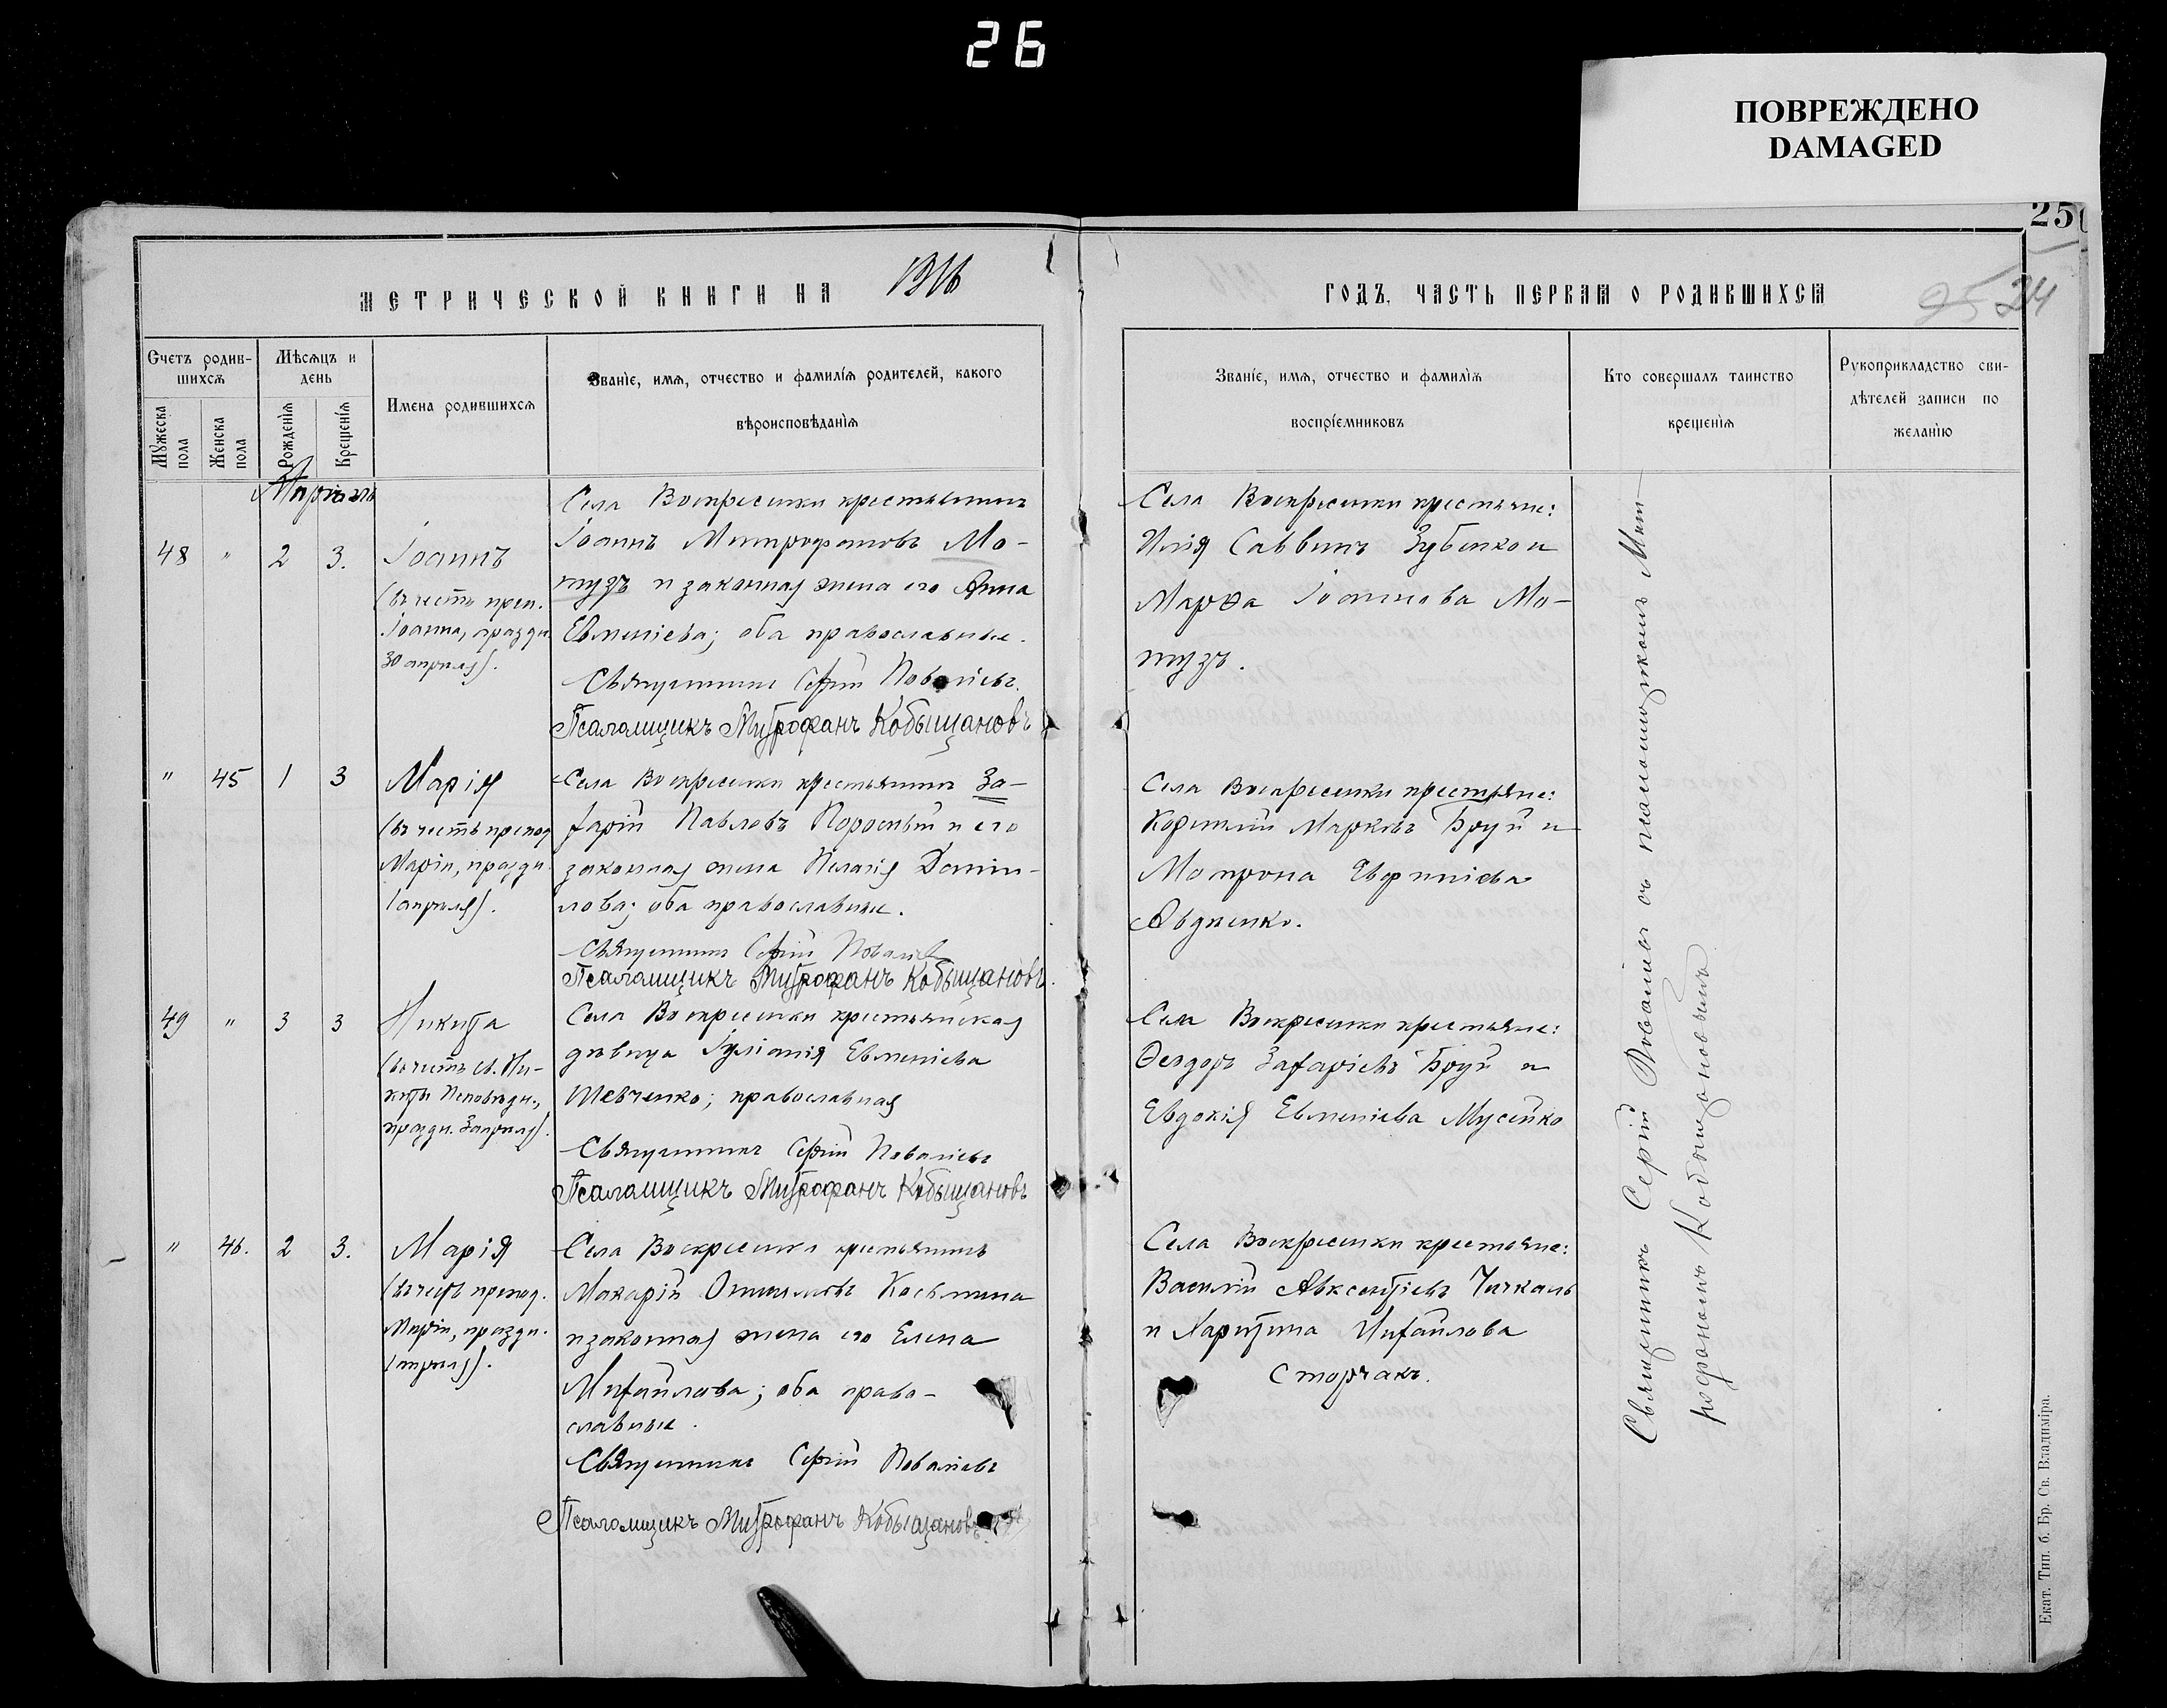 26
ПОВРЕЖДЕНО
DAMAGED
25
25 24
МЕТРИЧЕСКОЙ КНИГИ НА 1916
ГОДЪ, ЧАСТЬ ПЕРВАЯ О РОДИВШИХСЯ
Счетъ родив-
шихся
Мужеска
пола
Женска
пола
Мѣсяцъ и
день
Рожденія
Крещенія
Имена родившихся
Званіе, имя, отчество и фамилія родителей, какого
вѣроисповѣданія
Званіе, имя, отчество и фамилія
воспріемниковъ
Кто совершалъ таинство
крещенія
Рукоприкладство сви-
дѣтелей записи по
желанію
48 " 2 3.
Іоаннъ
(въ честь преп.
Іоанна, праздн.
30 апрѣля).
Села Воскресенки крестьянинъ
Іоаннъ Митрофановъ Мо-
тузъ и законная жена его Анна
Евменіева; оба православные.
Священникъ Сергій Поволіевъ
Псаломщикъ Митрофанъ Кобыщановъ
Села Воскресенки крестьяне:
Илія Саввинъ Зубенко и
Марѳа Іоаннова Мо-
тузъ.
" 45 1 3
Марія
(въ честь препод.
Маріи, праздн.
1 апрѣля).
Села Воскресенки крестьянинъ За-
харій Павловъ и его
законная жена Пелагія Дании-
лова; оба православные.
Священникъ Сергій Поволіевъ
Псаломщикъ Митрофанъ Кобыщановъ.
Села Воскресенки крестьяне:
Корнилій Марковъ Бруй и
Матрона Евфиміева
Авдіенко.
49 " 3 3
Никита
(въ честь св. Ни-
киты Исповѣдн.,
праздн. 3 апрѣля).
Села Воскресенки крестьянская
дѣвица Іуліанія Евменіева
Шевченко; православная
Священникъ Сергій Поволіевъ
Псаломщикъ Митрофанъ Кобыщановъ
Села Воскресенки крестьяне:
Ѳеодоръ Захаріевъ Бруй и
Евдокія Евменіева Мусейко
" 46. 2 3.
Марія
(въ честь препод.
Маріи, праздн.
1 апрѣля).
Села Воскресенки крестьянинъ
Макарій Косьмина
и законная жена его Елена
Михайлова; оба право-
славные.
Священникъ Сергій Поволіевъ
Псаломщикъ Митрофанъ Кобыщановъ
Села Воскресенки крестьяне:
Василій Авксентіевъ Чичкань
и Харитина Михайлова
Сторчакъ.
Священникъ Сергій Поволіевъ съ псаломщикомъ Мит-
рофаномъ Кобыщановымъ
Екат. Тип. б. Бр. Св. Владиміра.